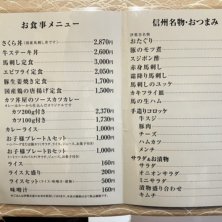 お食事メニュー
さくら丼 2,870円
牛ステーキ丼 2,000円
馬刺し定食 3,000円
エビフライ定食 2,050円
豚生姜焼き定食 1,700円
国産鶏の唐揚げ定食 1,500円
カツ丼屋のソースカツカレー
カツ200g付き 2,370円
カツ100g付き 1,900円
カレーライス 1,000円
お子様プレートAセット 1,000円
お子様プレートBセット 1,000円
ライス 160円
ライス大盛り 200円
ライスセット 500円
味噌汁 160円
信州名物・おつまみ
おたぐり
豚のモツ煮
スジポン酢
赤身馬刺し
霜降り馬刺し
馬刺しのユッケ
カキフライ皿
馬の生ハム
手造りコロッケ
牛スジ
豚肉
チーズ
ハムカツ
メンチ
サラダ&お漬物
サラダ
オニオンサラダ
ミニサラダ
漬物盛り合わせ
キムチ